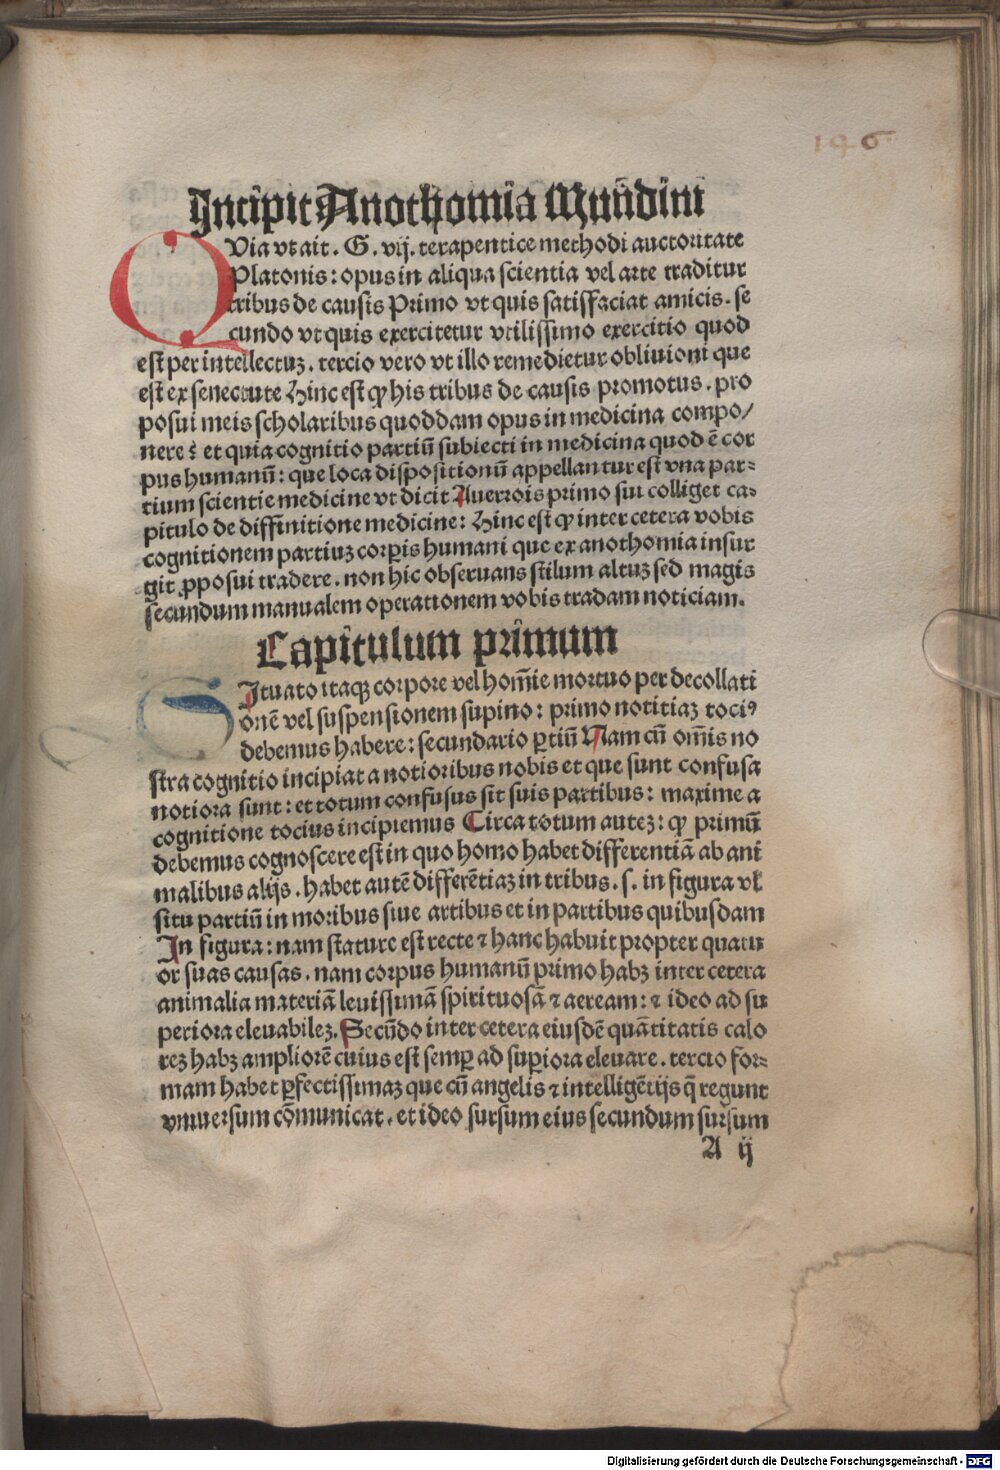 146
Incipit Anothomia Mundini
QVia vt ait . G . vij . terapentice methodi auctoritate
Platonis : opus in aliqua scientia vel arte traditur
tribus de causis Primo vt quis satisffaciat amicis . se
cundo vt quis exercitetur vtilissimo exercitio quod
est per intellectuꝫ . tercio vero vt illo remedietur obliuioni que
est ex senectute Hinc est ꝙ his tribus de causis promotus . pro
posui meis scholaribus quoddam opus in medicina compo/
nere : et quia cognitio partiū subiecti in medicina quod ē cor
pus humanū : que loca dispositionū appellantur est vna par-
tium scientie medicine vt dicit Auerrois primo sui colliget ca-
pitulo de diffinitione medicine : Hinc est ꝙ inter cetera vobis
cognitionem partiuꝫ corꝑis humani que ex anothomia insur
git ꝓposui tradere . non hic obseruans stilum altuꝫ sed magis
secundum manualem operationem vobis tradam noticiam .
Capitulum primum
SItuato itaqꝫ corpore vel hoīnie mortuo per decollati
onē vel suspensionem supino : primo notitiaꝫ tociꝰ
debemus habere : secundario ꝑtiū Nam cū om̄is no
stra cognitio incipiat a notioribus nobis et que sunt confusa
notiora sunt : et totum confusus sit suis partibus : maxime a
cognitione tocius incipiemus Circa totum auteꝫ : ꝙ primū
debemus cognoscere est in quo homo habet differentiā ab ani
malibus alijs . habet autē differētiaꝫ in tribus . s . in figura vꝉ
situ partiū in moribus siue artibus et in partibus quibusdam
In figura : nam stature est recte ⁊ hanc habuit propter quatu
or suas causas . nam corpus humanū primo habꝫ inter cetera
animalia materiā leuissimā spirituosā ⁊ aeream : ⁊ ideo ad su
periora eleuabileꝫ . Secūdo inter cetera eiusdē quātitatis calo
reꝫ habꝫ ampliorē cuius est semꝑ ad suꝑiora eleuare . tercio for-
mam habet ꝑfectissimaꝫ que cū angelis ⁊ intelligētijs q̄ regunt
vniuersum cōmunicat . et ideo sursum eius secundum sursum
A ij
Digitalisierung gefördert durch die Deutsche Forschungsgemeinschaft - DFG